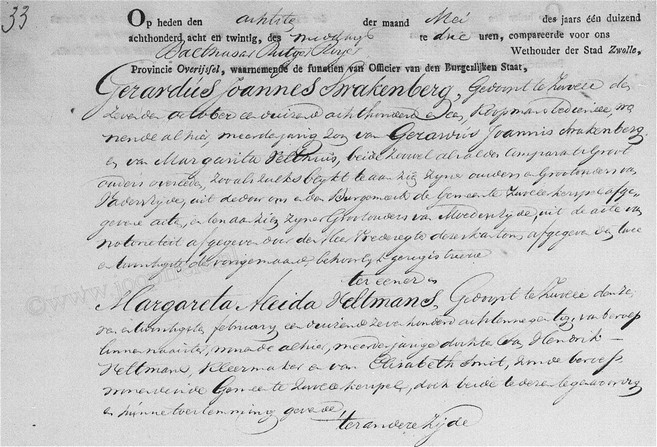 33
Op heden den achtste der maand Mei des jaars één duizend
achthonderd, acht en twintig, des middags te drie uren, compareerde voor ons
Balthasar Rutger Wethouder der Stad Zwolle,
Provincie Overijssel, waarnemende de functien van Officier van den Burgerlijken Staat,
Gerardus Joannes Srakenberg, Gedoopt te Zwolle den
Zevenden october een duizend achthonderd en een, Koopman, wo-
nende alhier, meerderjarig zoon van Gerardus Joannis Srakenberg
en van Margarita Velthuis, beide zoowel als alder Comparants Groot
ouders overleden, zoo als zulks blykt te aanzien zyner ouders en Grootouders van
Vaderszyde, uit de door ons en den Burgemeester de Gemeente Zwollerkerspel afge-
gevene acten, en ten aanzien zyner Grootouders van Moederszyde, uit de acte van
notorieteit afgegeven door den Heer Vrederegter dezes kantons, afgegeven den twee
en twintigste der voorgemaand, behoorlyk geregistreerd
ter eener en
Margareta Aleida Heltmans, Gedoopt te Zwolle den ze
ven en twintigste february een duizend zeven honderd acht en negentig, van beroep
linnennaaister, wonende alhier, meerderjarige dochter van Hendrik
Heltmans, Kleermaker en van Elisabeth Smit, zonder beroep
wonende in de Gemeente Zwollerkerspel, doch beide te dezer tegenwoordig
en hunne toestemming gevende,
ter andere zyde